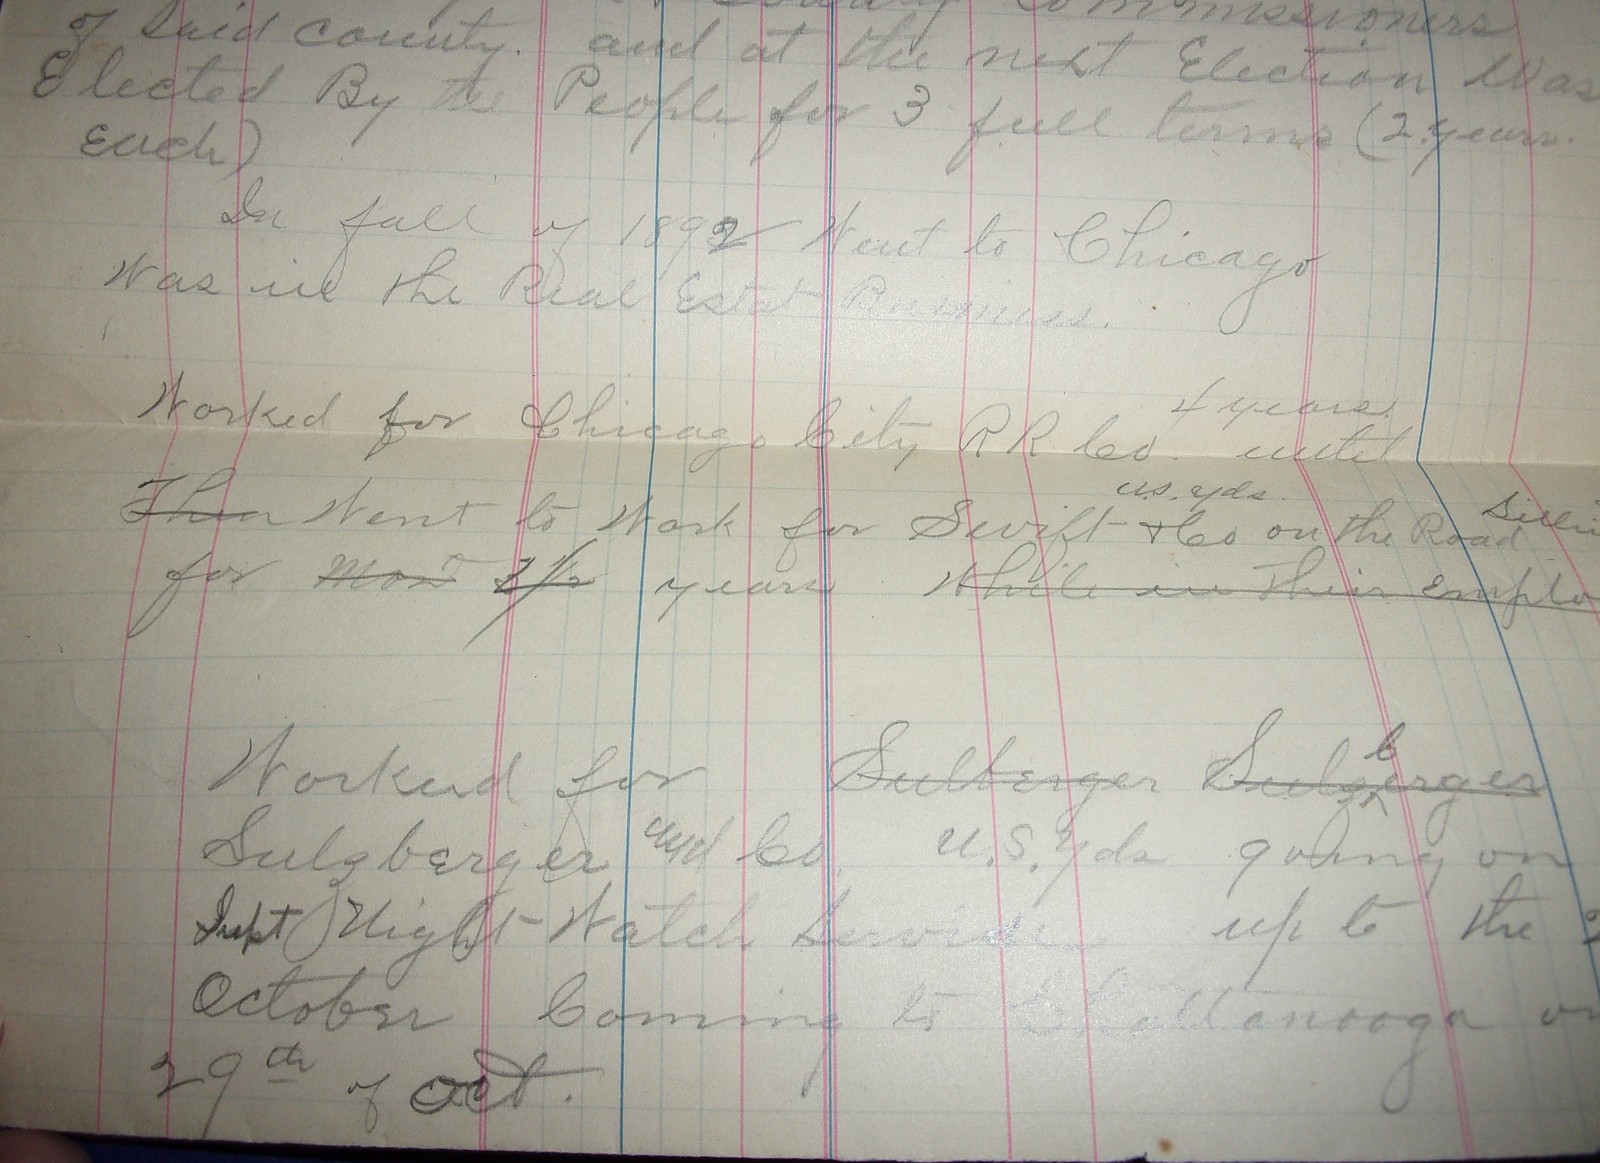 County Commissioners
of Said county. and at the next Election Was
Elected By the People for 3 full terms (2 years.
Each)
In fall of 1892 Went to Chicago
Was in the Real Estat Business.
4 years.
Worked for Chicago City R R Co. until
U.S. yds.
Then Went to Work for Swift & Co on the Road
for Most 2 1/2 years While in Their Emplo
Workud for Sulberger Sulzberger
Sulzberger and Co. U.S. Yds going on
Night Watch Service up to the 2
October Coming to Chattanooga on
29th of Oct.